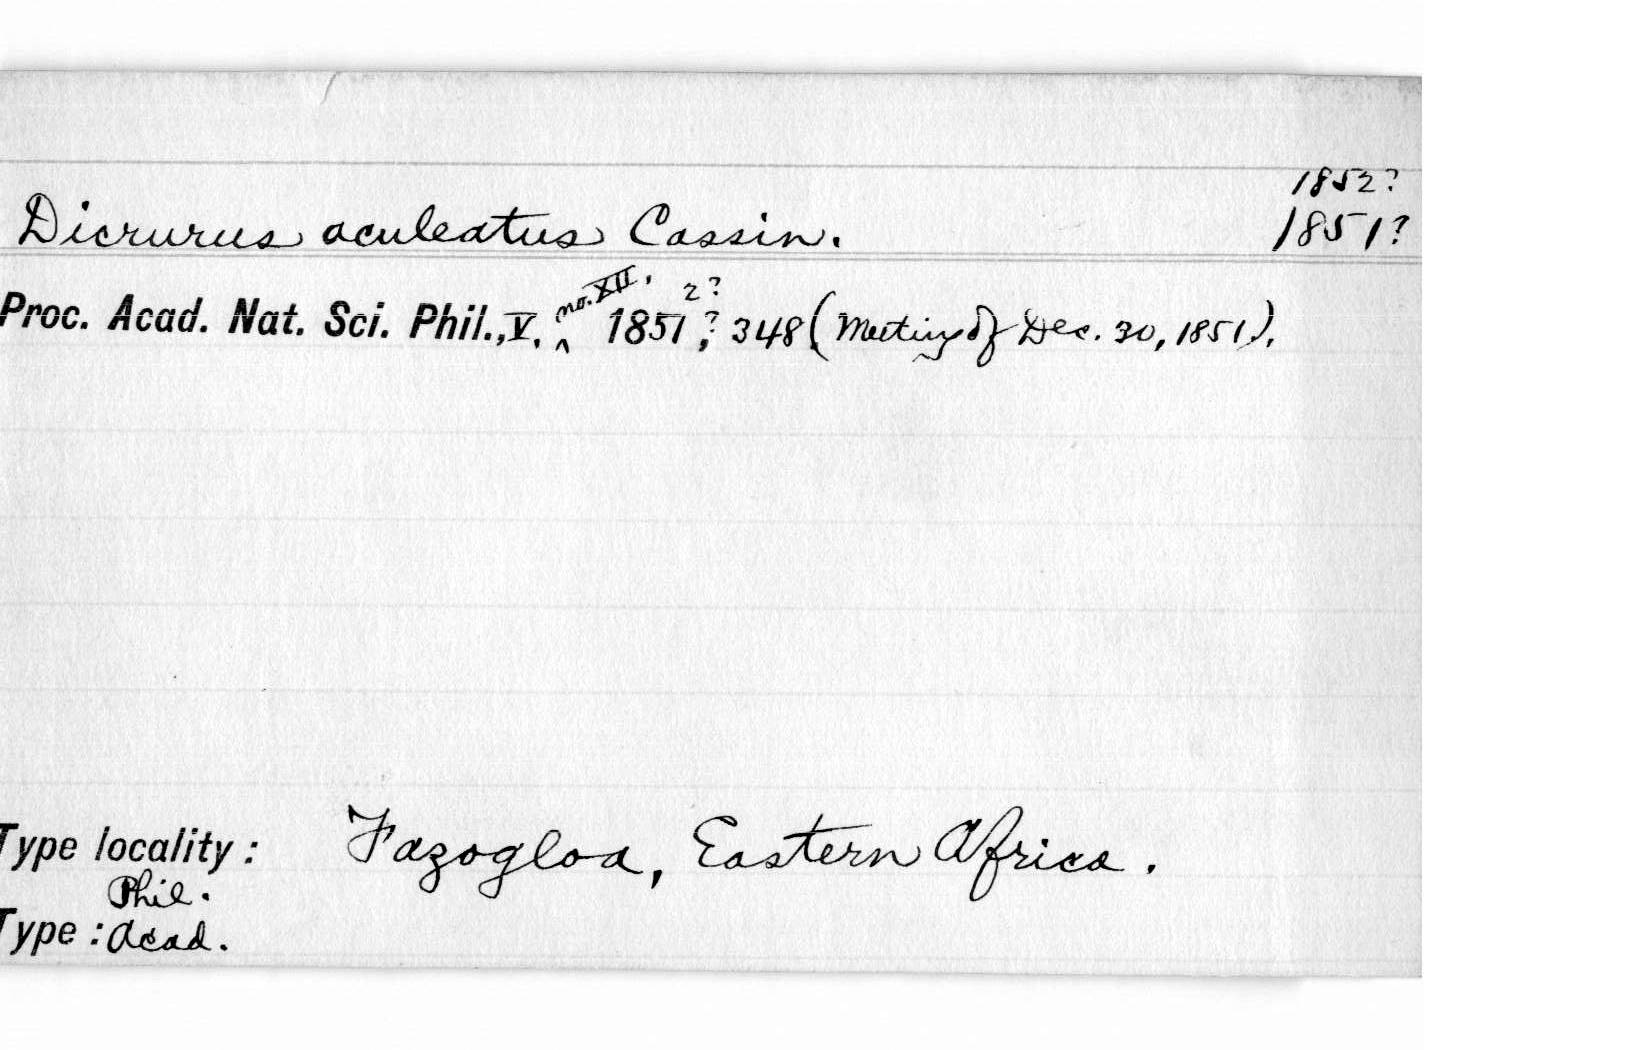 1852?
Dicrurus aculeatus Cassin. 1851?
no. XII. 2?
Proc. Acad. Nat. Sci. Phil., V. ^ 1851?, 348 (Meeting of Dec. 30, 1851).
Type locality: Fazogloa, Eastern Africa.
Phil.
Type: Acad.